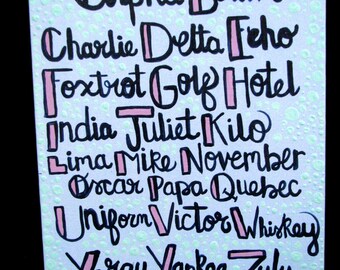 Alpha Bravo
Charlie Delta Echo
Foxtrot Golf Hotel
India Juliet Kilo
Lima Mike November
Oscar Papa Quebec
Uniform Victor Whiskey
Xray Yankee Zulu